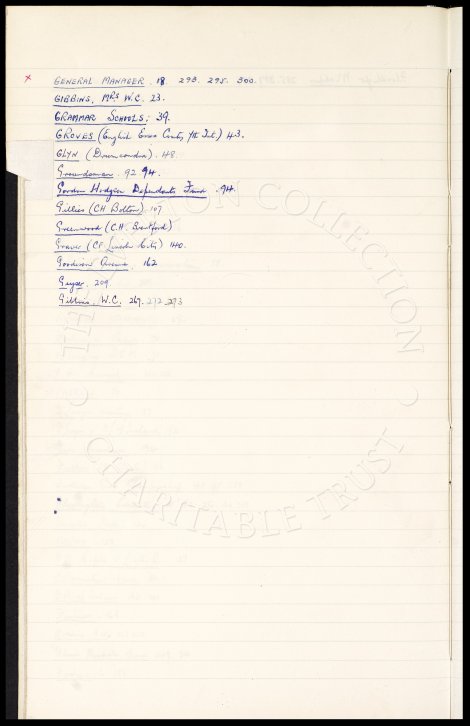 x GENERAL MANAGER. 18 293. 295. 300.
GIBBINS, MRS W.C. 23.
GRAMMAR SCHOOLS; 39.
GROVES (English Grammar County Yth Int.) 43.
GLYN (Drumcondra). 48.
Groundsman. 92 94.
Gordon Hodgson Dependents Fund. 94.
Gillies (CH Bolton). 107
Greenwood (C.H. Brentford)
Graver (CF. Lincoln City) 140.
Goodison Avenue. 162
Geyser. 209.
Gibbins, W.C. 267. 272. 273
THE EVERTON COLLECTION
CHARITABLE TRUST